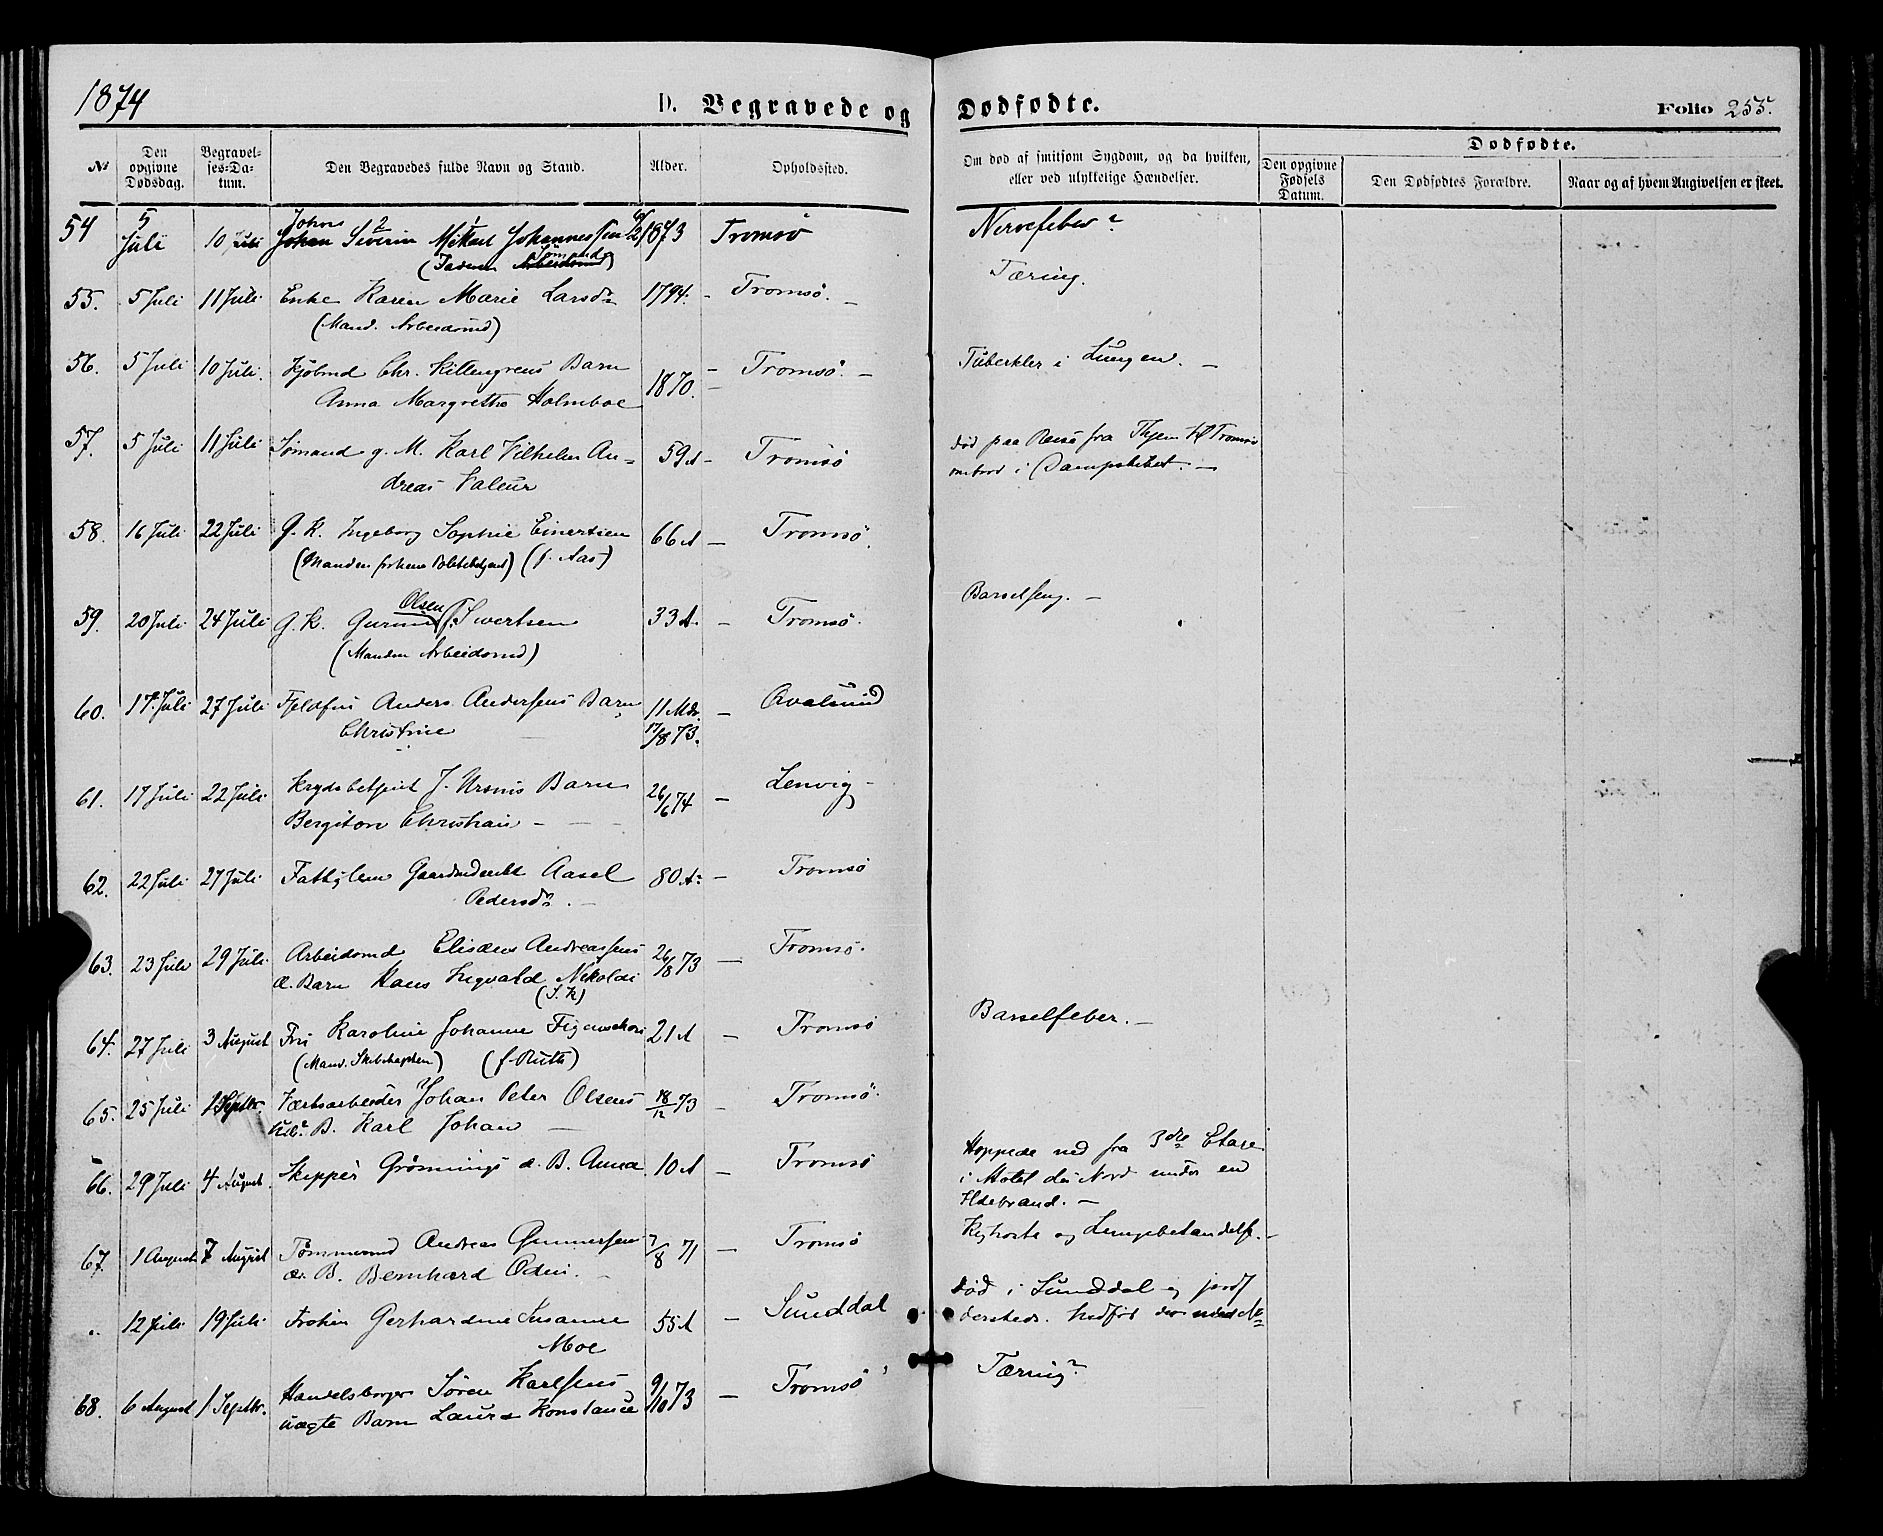 1874
D. Begravede og Dødfødte.
Folio 255.
№
Den opgivne Dødsdag.
Begravelses-Datum.
Den Begravedes fulde Navn og Stand.
Alder.
Opholdssted.
Om død af smitsom Sygdom, og da hvilken, eller ved ulykkelige Hændelser.
Dødfødte.
Den opgivne Fødsels Datum.
Den Dødfødtes Forældre.
Naar og af hvem Angivelsen er skeet.
54 5 Juli 10 Juli Johan Severin Mikael Johannessen 1873 Tromsø Nervefeber
(Faderen Sømand)
55. 5 Juli 11 Juli Enke Karen Marie Larsdr 1794. - Tromsø. - Tæring.
(Mand. Arbeidsmd)
56. 5 Juli 10 Juli. Kjøbmd Chr. Killengreens Barn 1870. - Tromsø. - Tuberkler i Lungen. -
Anna Margrethe Holmboe
57. 5 Juli 11 Juli Sømand g. M. Karl Vilhelm An- 59 A - Tromsø død paa Reise fra Tromsø
dreas Valeur ombord i Dampskibet. -
58. 16 Juli 22 Juli G. K. Ingeborg Sophie Einertsen 66 A - Tromsø.
(Manden forhenv Politibetjent) (f. Aas)
59. 20 Juli 24 Juli G. K. Olsen (f. Sivertsen 33 A. - Tromsø. Barselseng. -
(Manden Arbeidsmd)
60. 17 Juli 27 Juli Anders Andersens Barn 11 Mdr. - Qvalsund
Christine 17/8 73.
61. 17 Juli 22 Juli Krydsbetjent J. Barn 26/6 74 - Lenvig -
Bergiton Christian -
62. 22 Juli 27 Juli Fattiglem Aasel 80 A: - Tromsø
Pedersdr. -
63. 23 Juli 29 Juli Arbeidsmd Elisæus Andreassens 26/8 73 - Tromsø.
æ. Barn Hans Ingvald Nikolai
64. 27 Juli 3 August Fru Karoline Johanne Figenschou 21 A - Tromsø Barselfeber. -
(Mand. Skibskaptein) (f. Ruth)
65. 25 Juli 1 Septbr. Værftsarbeider Johan Peter Olsens 18/12 73 - Tromsø.
B. Karl Johan -
66. 29 Juli 4 August. Skipper Grønnings æ. B. Anna 10 A - Tromsø Hoppede ned fra 3die Etage
i Hotel du Nord under en
Ildebrand. -
67. 1 August 7 August Tømmermd Andreas Gunnersen 7/8 71 - Tromsø Kighoste og Lungebetændelse. -
æ. B. Bernhard Odin. -
" 12 Juli 19 Juli Frøken Gerhardine Susanne 55 A - Sunddal død i Sunddal og jordf
Moe dersteds.
68. 6 August 1 Septbr. Handelsborger Søren Karlsens 9/10 73 - Tromsø Tæring?
uægte Barn Laura Konstance